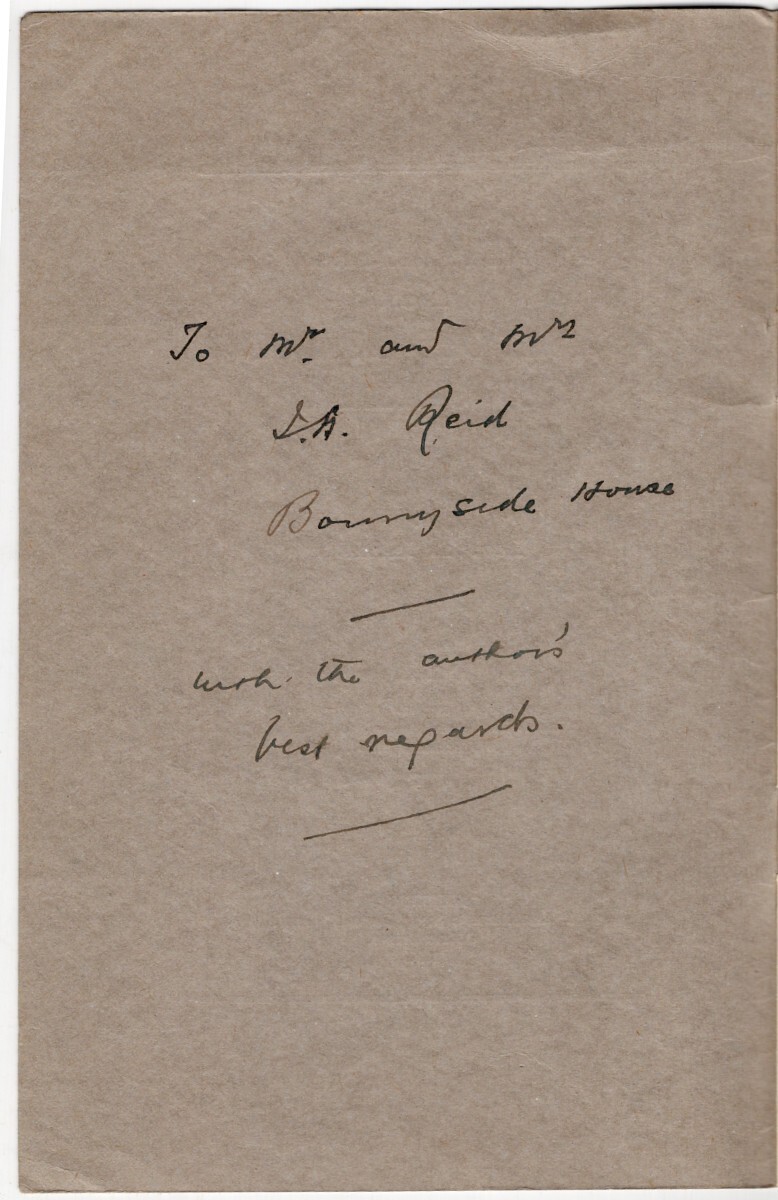 To Mr. and Mrs
J.A. Reid
Bonnyside House
with the author's
best regards.